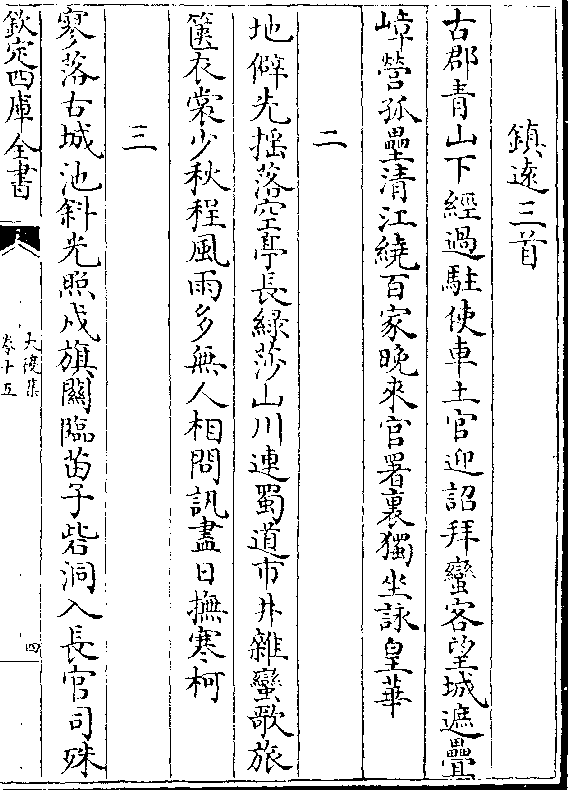 鎮遠三首
古郡青山下經過駐使車土官迎詔拜蠻客望城遮疊
嶂營孤壘清江繞百家晚來官署裏獨坐詠皇華
二
地僻先揺落空亭長緑莎山川連蜀道市井雜蠻歌旅
篋衣裳少秋程風雨多無人相問訊盡日撫寒柯
三
寥落古城池斜光照戍旗關臨苗子砦洞入長官司殊
欽定四庫全書
大復集
卷十五
四